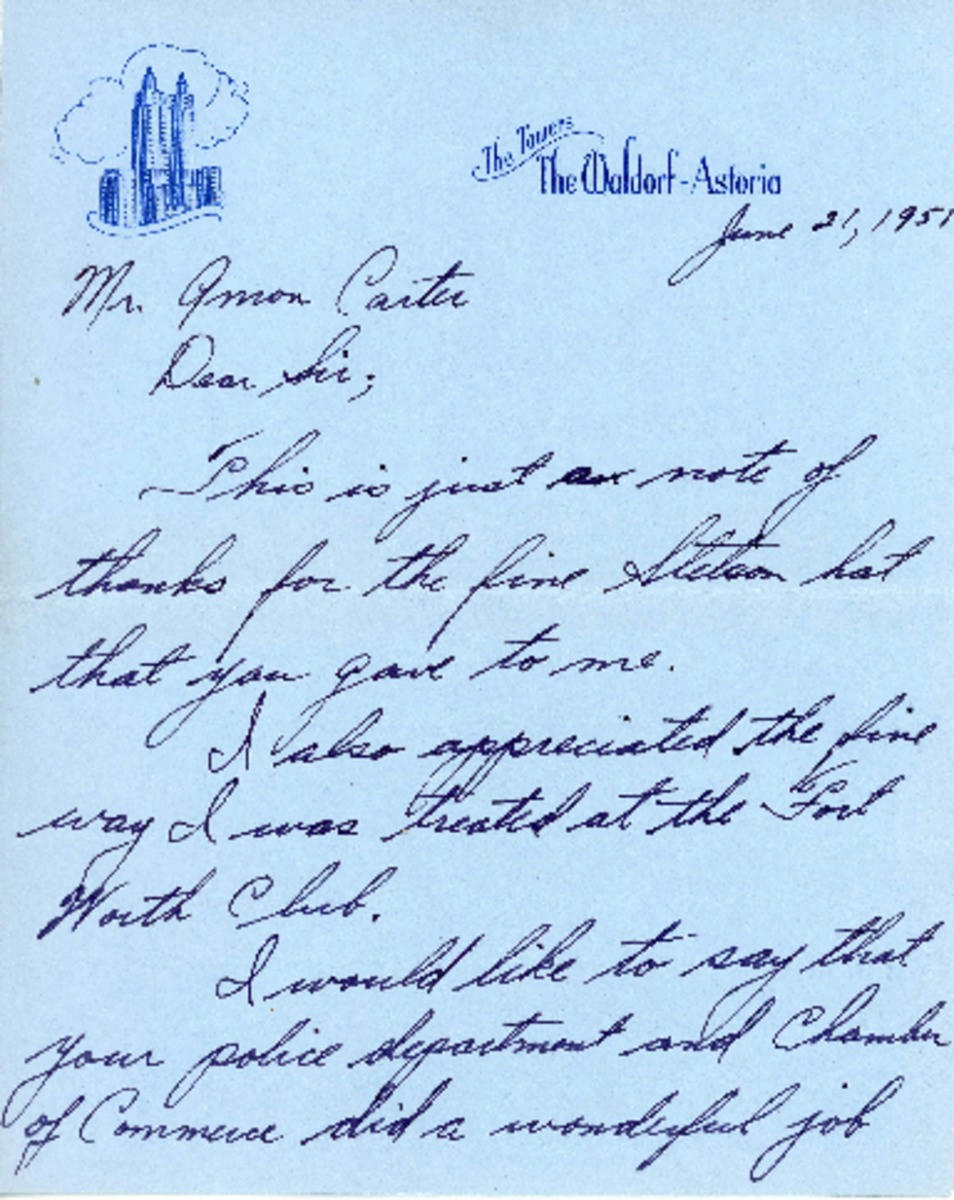 The Towers
The Waldorf-Astoria
June 21, 1951
Mr. Amon Carter
Dear Sir;
This is just a note of
thanks for the fine Stetson hat
that you gave to me.
I also appreciated the fine
way I was treated at the Fort
Worth Club.
I would like to say that
your police department and Chamber
of Commerce did a wonderful job